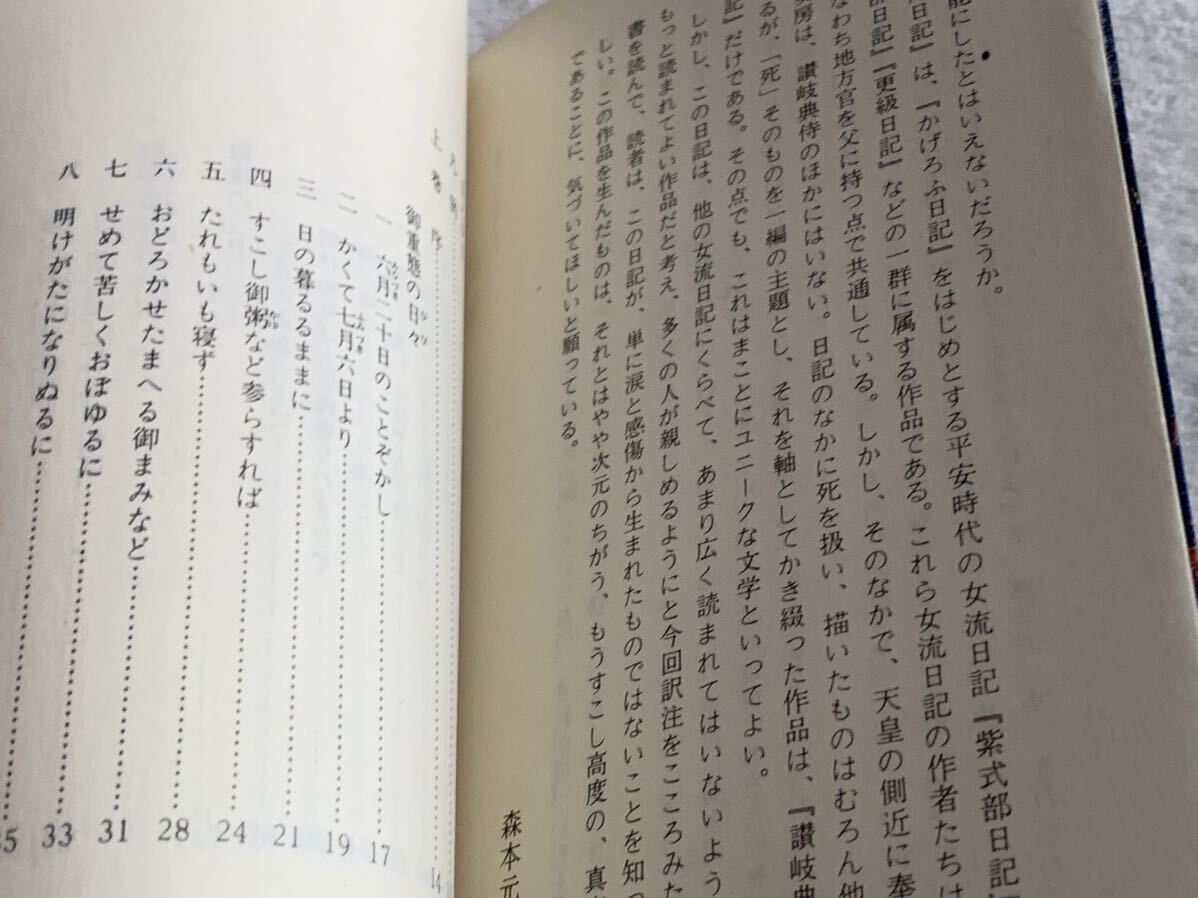 能にしたとはいえないだろうか。
日記』は、『かげろふ日記』をはじめとする平安時代の女流日記『紫式部日記』
部日記』『更級日記』などの一群に属する作品である。これら女流日記の作者たちは
なわち地方官を父に持つ点で共通している。しかし、そのなかで、天皇の側近に奉
房は、讃岐典侍のほかにはいない。日記のなかに死を扱い、描いたものはむろん他
るが、「死」そのものを一編の主題とし、それを軸としてかき綴った作品は、『讃岐典
記』だけである。その点でも、これはまことにユニークな文学といってよい。
しかし、この日記は、他の女流日記にくらべて、あまり広く読まれてはいないよう
もっと読まれてよい作品だと考え、多くの人が親しめるようにと今回訳注をこころみた
書を読んで、読者は、この日記が、単に涙と感傷から生まれたものではないことを知っ
しい。この作品を生んだものは、それとはやや次元のちがう、もうすこし高度の、真
であることに、気づいてほしいと願っている。
森本元
上巻
序……14
御重態の日々
一 六月二十日のことぞかし……17
二 かくて七月六日より……19
三 日の暮るるままに……21
四 すこし御粥など参らすれば……24
五 たれもいも寝ず……28
六 おどろかせたまへる御まみなど……31
七 せめて苦しくおぼゆるに……33
八 明けがたになりぬるに……35